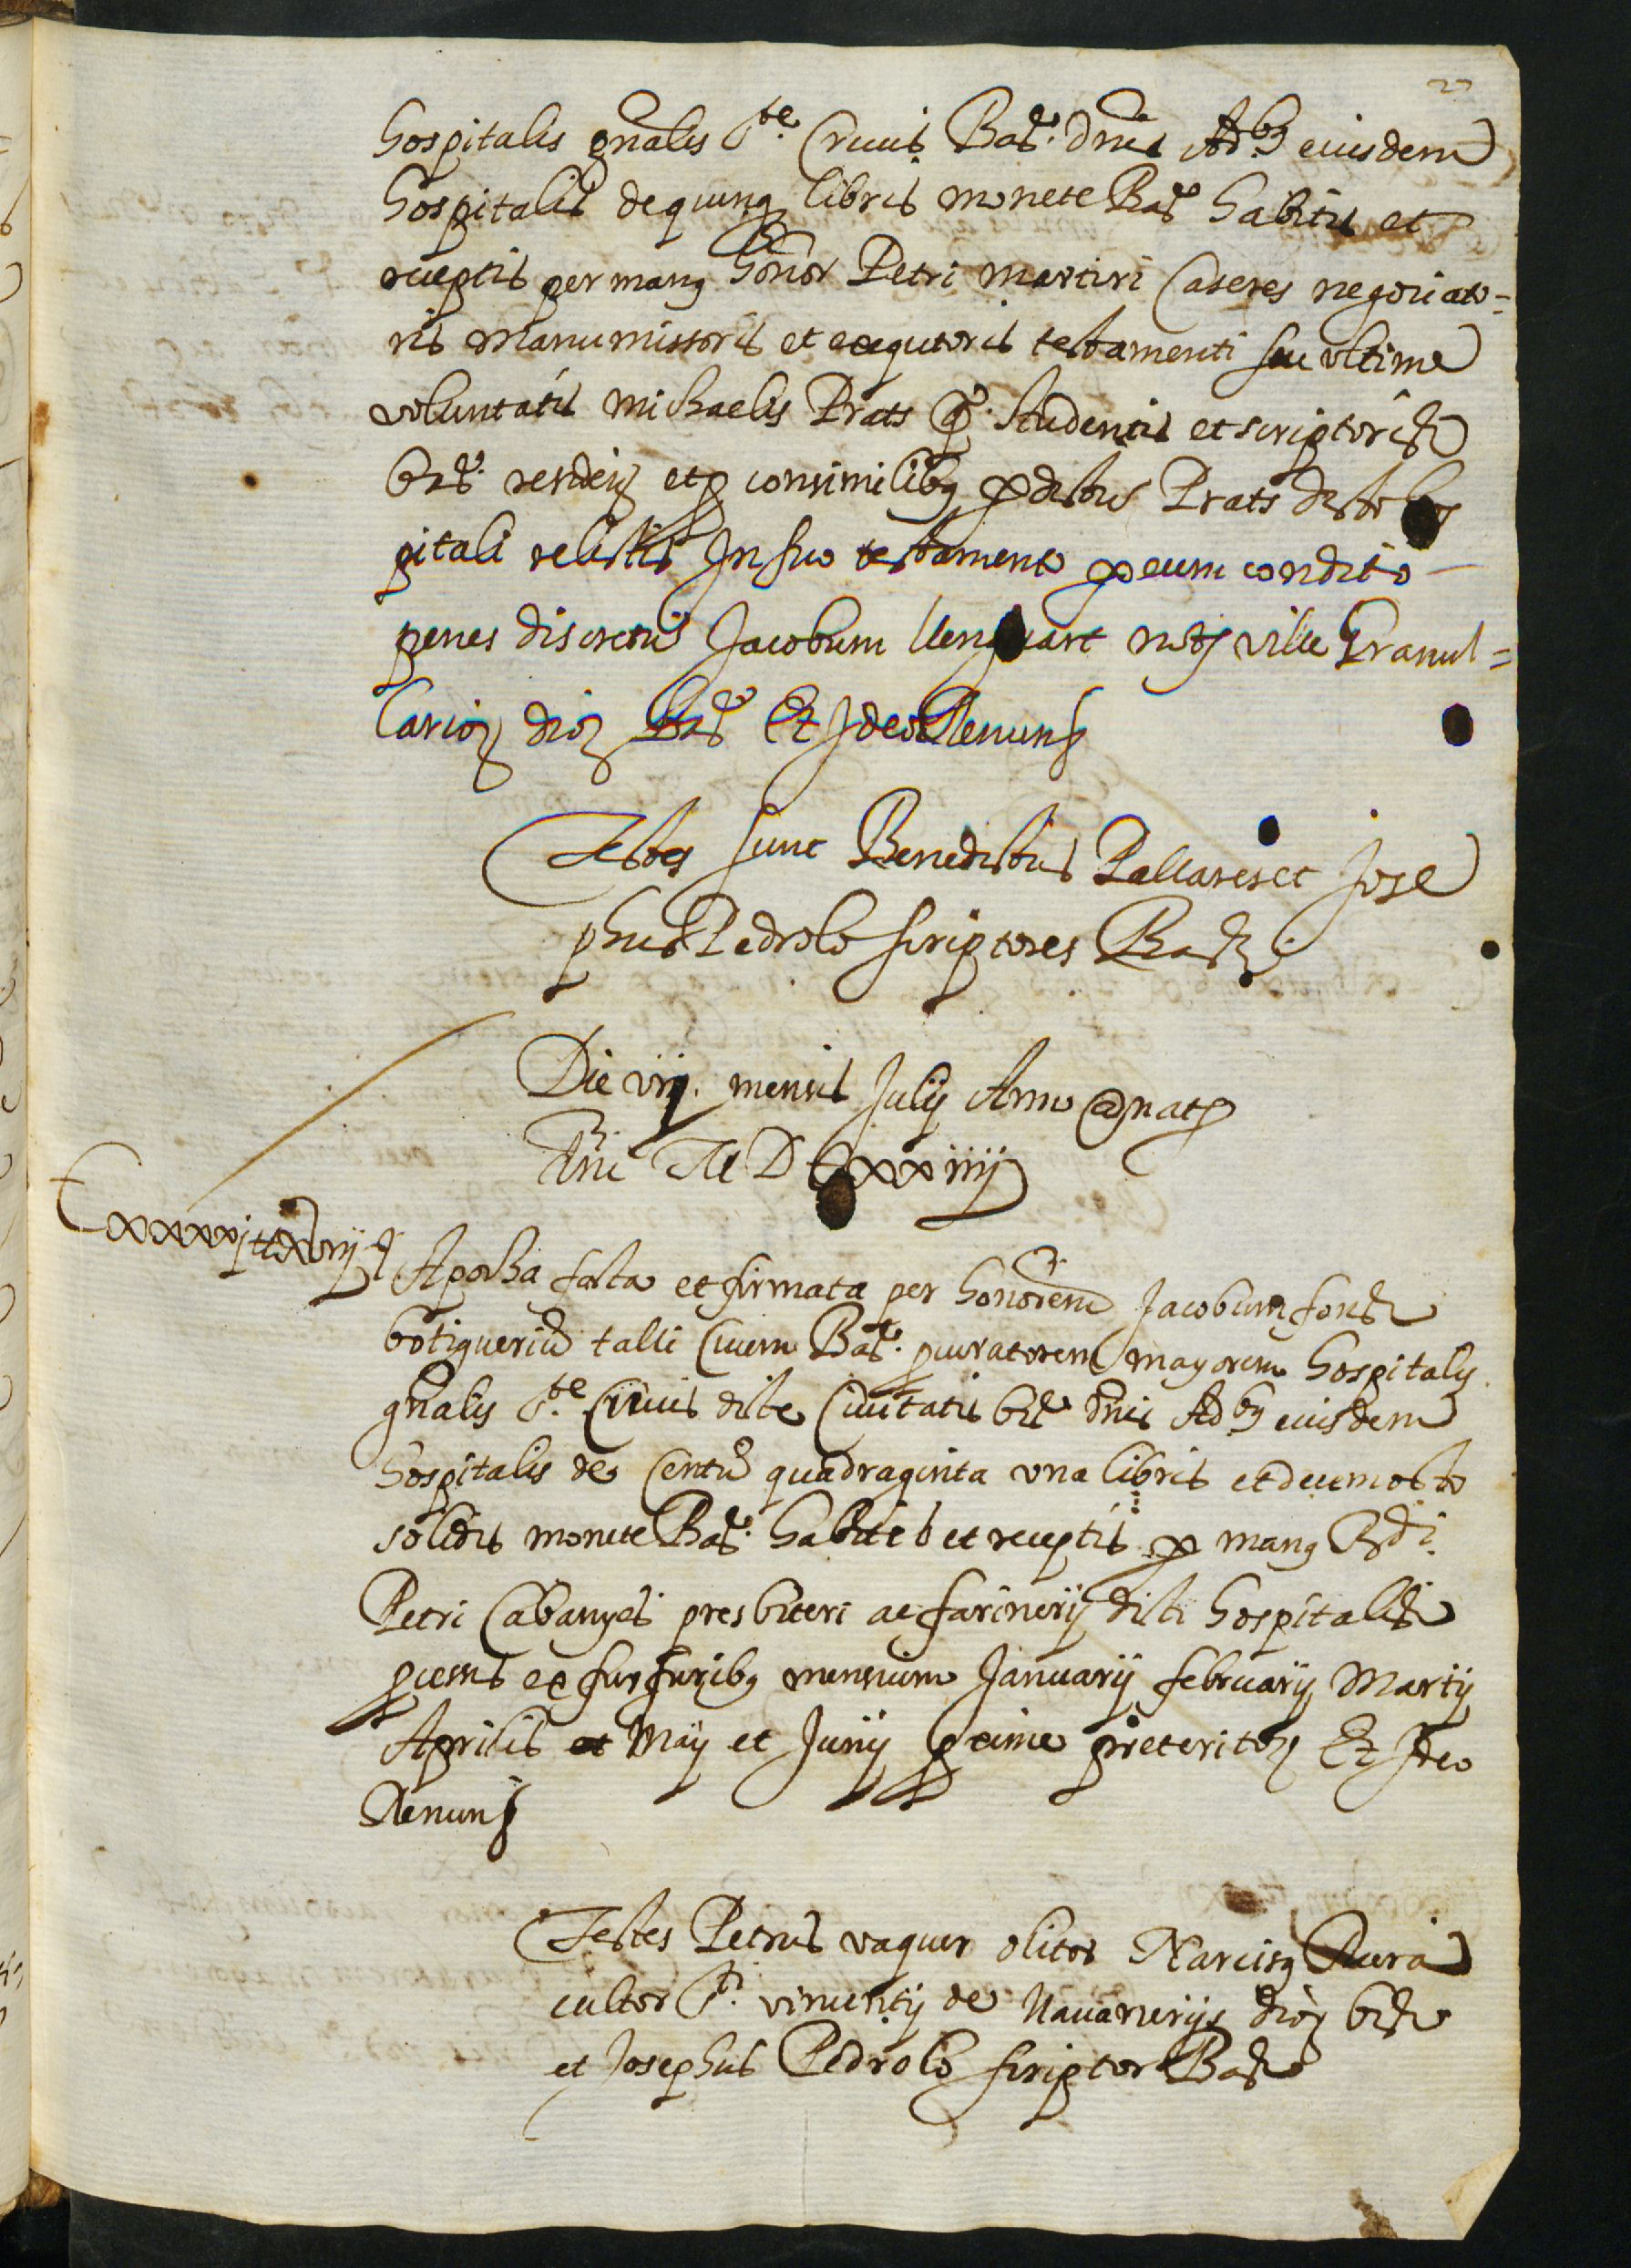 27
hospitalis gnalis Ste Crucis Bar. dnis Adbus eiusdem
hospitalis de quinq libris monete Bar habitis et
receptis per manus honor Petri martiri Caseres negotiato=
ris manumissoris et exequtoris testamenti seu ultime
voluntatis michaelis Prats q. studentis et scriptoris
bar. resideñ et p consimilibus p dictus Prats dicto hos
pitali relictis In suo testamento p eum condito
penes discretu Jacobum llenguart notm ville Granul=
larior dioc Bar Et Ideo Renuns
Testes sunt Benedictus Pallares et Jose
phus Pedrolo scriptores Bar
Die viij. mensis Julij Anno a nat
Dni M D Cxxiiij
Cxxxxj ll xviij s
Apocha facta et firmata per honorem Jacobum font
botigueriu talli Civem Bar. procuratorem mayorem hospitalis
gnalis Ste Crucis dicte Civitatis bar dnis Adbus eiusdem
hospitalis de Centu quadraginta una libris et decemocto
solidis monete Bar. habitis et receptis p manus Rdi.
Petri Cabanyes presbiteri ac farinerij dicti hospitalis
pcessis ex furfuribus mensium Januarij februarij Martij
Aprilis et Maij et Junij pxime preteritor Et Ideo
Renuns
Testes Petrus vaquer olitor Narcisus Rura
cultor Sti. vincentij de Navarrerijs dioc bar
et Josephus Pedrolo scriptor Bar